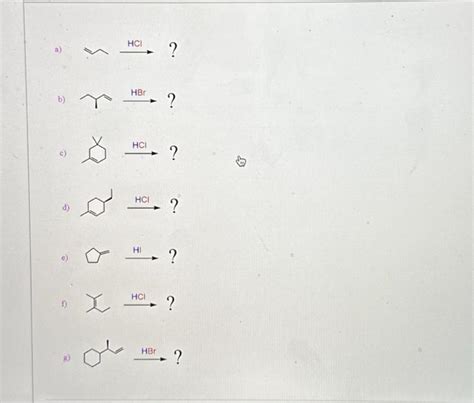 a) HCl ?
b) HBr ?
c) HCl ?
d) HCl ?
e) HI ?
f) HCl ?
g) HBr ?